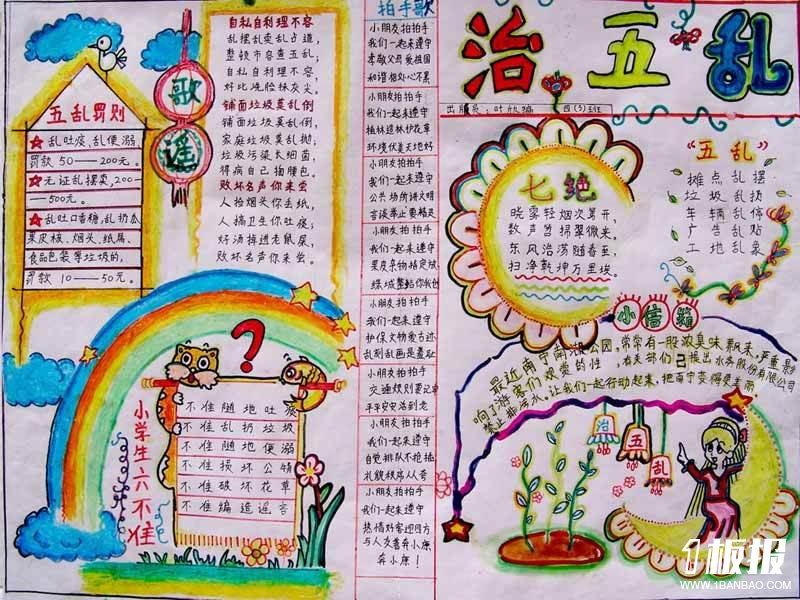 治五乱
出版员：
四(5)班
拍手歌
小朋友拍拍手
我们一起来遵守
孝敬父母爱祖国
和谐相处心不累
小朋友拍拍手
我们一起来遵守
植林造林护花草
环境优美天地好
小朋友拍拍手
我们一起来遵守
公共场所讲文明
言谈举止要
小朋友拍拍手
我们一起来遵守
果皮杂物指定放
绿城整洁你我创
小朋友拍拍手
我们一起来遵守
护保文物爱古迹
乱刻乱画是羞耻
小朋友拍拍手
交通规则要记牢
平平安安活到老
小朋友拍拍手
我们一起来遵守
自觉排队不抢插
礼貌秩序人人夸
小朋友拍拍手
我们一起来遵守
热情好客迎四方
与人友善奔小康
奔小康！
歌谣
自私自利理不容
乱摆乱卖乱占道，
整顿市容查五乱；
自私自利理不容
好比烧脸抹灰尘
铺面垃圾莫乱倒
铺面垃圾莫乱倒，
家庭垃圾莫乱抛；
垃圾污染大细菌，
得病自己掏腰包。
败坏名声你来当
人怡烟头你丢纸，
人搞卫生你吐痰；
好汤掉进老鼠屎，
败坏名声你来当。
五乱罚则
乱吐痰、乱便溺，
罚款50——200元。
无证乱摆卖，200
——500元。
乱吐口香糖，乱扔瓜
果皮核、烟头、纸屑、
食品包装等垃圾的，
罚款10——50元。
?
小学生六不准
不准随地吐痰
不准乱扔垃圾
不准随地便溺
不准损坏公物
不准破坏花草
不准编造谣言
七绝
晓雾轻烟次第开，
数声笃拐翠微来。
东风浩荡随春至，
扫净乾坤万里埃。
“五乱”
摊点乱摆
垃圾乱扔
车辆乱停
广告乱贴
工地乱象
小信箱
最近南宁南湖公园，常常有一股浓臭味飘来，严重影
响了游客们观赏的性，有关部们已提出水务股份有限公司
禁止排污水，让我们一起行动起来，把南宁变得更美丽。
治五乱
1板报
WWW.1BANBAO.COM